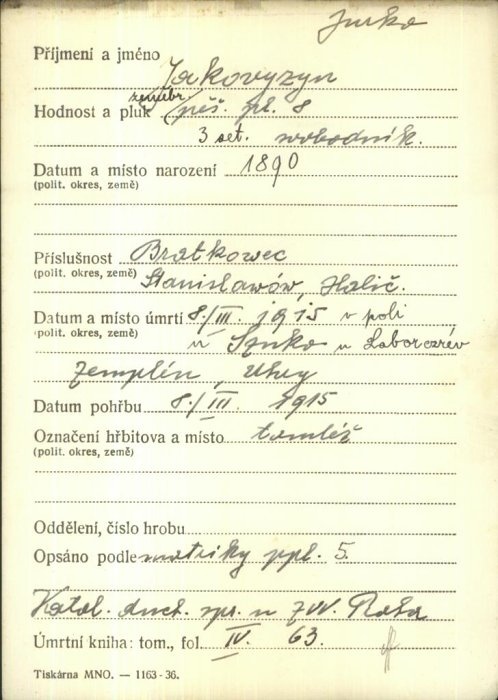 Jurko
Příjmení a jméno Jakovyzyn
Hodnost a pluk zeměbr. pěš. pl. 8
3 set. svobodník.
Datum a místo narození 1890
(polit. okres, země)
Příslušnost Bratkowec
(polit. okres, země) Stanislawów, Halič.
Datum a místo úmrtí 8./III. 1915 v poli
(polit. okres, země) u Szuko u Laborcarév
Zemplén, Uhry
Datum pohřbu 8./III. 1915
Označení hřbitova a místo tamtéž
(polit. okres, země)
Oddělení, číslo hrobu
Opsáno podle matriky ppl. 5.
Katol. duch. spr. u ZVV. Praha
Úmrtní kniha: tom., fol. IV. 63.
Tiskárna MNO. — 1163-36.